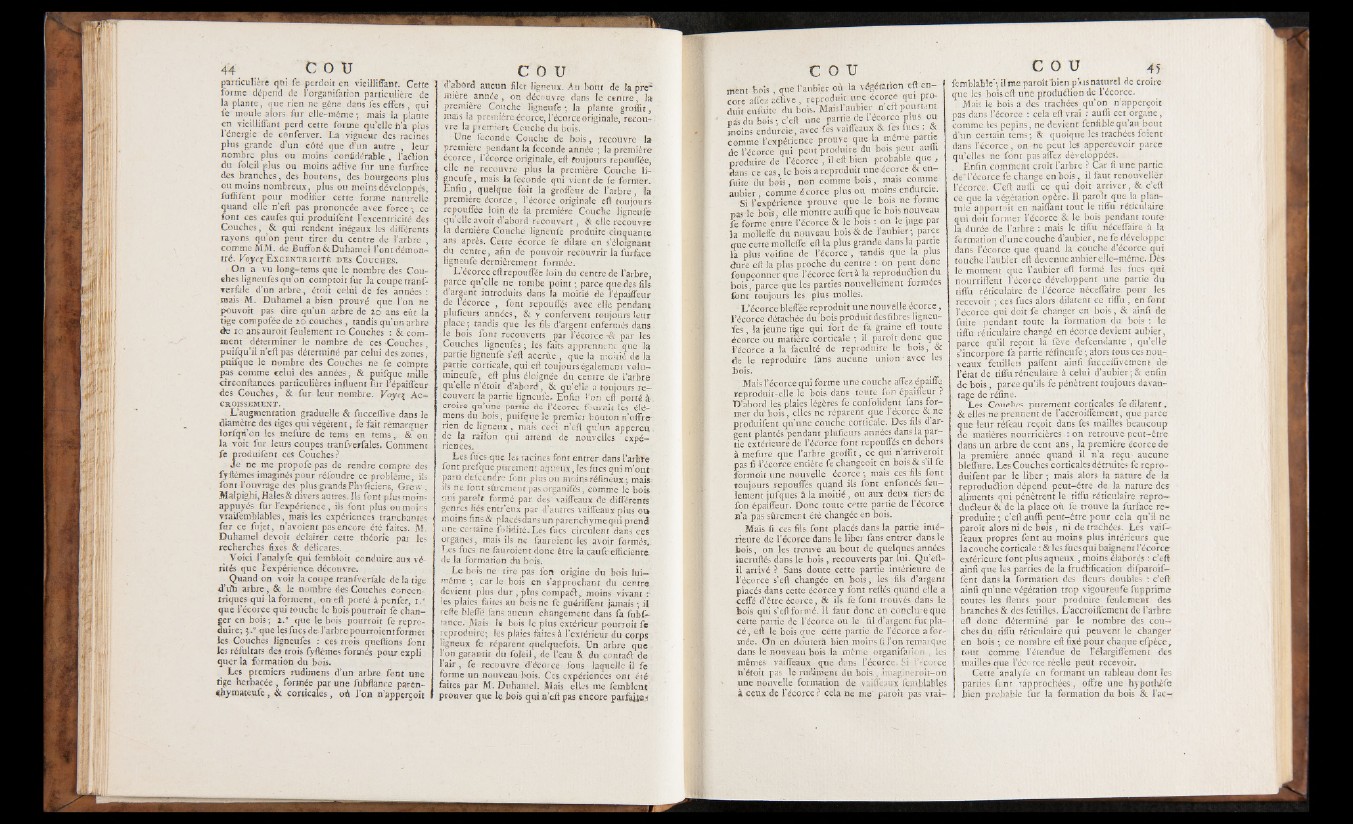 44 C O U
particulière qui se perdoit en vieillissant. Cette
forme dépend de l'organisation particulière de
la plante, que rien ne gêne dans ses effets, qui
se moule alors sur elle-même ; mais la plante
en vieillissant perd cette forme qu'elle n'a plus
l'énergie de conserver. La vigueur des racines
plus grande d'un côté que d'un autre , leur
nombre plus ou moins considérable , l'action
du soleil plus ou moins active sur une surface
des branches, des boutons, des bourgeons plus
ou moins nombreux, plus ou moins développés,
suffisent pour modifier cette forme naturelle
quand elle n'est pas prononcée avec force ; ce
sont ces causes qui produisent l'excentricité des
Couches, & qui rendent inégaux les différents
rayons qu'on peut tirer du centre de l'arbre ,
comme MM. de Buffon & Duhamel l'ont démon-
tré. Voyez EXCENTRICITÉ DES COUCHES.
On a vu long-tems que le nombre des Cou-
ches ligneuses qu'on comptoit sur la coupe trans-
versale d'un arbre, étoit celui de ses années :
mais M. Duhamel a bien prouvé que l'on ne
pouvoit pas dire qu'un arbre de 20 ans eût la
tige composée de 20 couches , tandis qu'un arbre
de 10 ans auroit seulement 10 Couches : & com-
ment déterminer le nombre de ces Couches,
puisqu'il n'est pas déterminé par celui des zones,
puisque le nombre des Couches ne se compte
pas comme celui des années, & puisque mille
circonstances particulières influent sur l'épaisseur
des Couches, & sur leur nombre. Voyez AC-
CROISSEMENT.
L'augmentation graduelle & successive dans le
diamètre des tiges qui végètent, se fait remarquer
lorsqu'on les mesure de tems en tems, & on
la voit sur leurs coupes transversales. Comment
se produisent ces Couches ?
Je ne me propose pas de rendre compte des
systêmes imaginés pour résoudre ce problême, ils
sont l'ouvrage des plus grands Physiciens, Grew,
Malpighi, Hales & divers autres. Ils sont plus moins-
appuyés sur l'expérience , ils sont plus ou moins
vraisemblables, mais les expériences tranchantes
sur ce sujet, n'avoient pas encore été faites. M.
Duhamel devoit éclairer cette théorie par les
recherches fixes & délicates.
Voici l'analyse qui sembloit conduire aux vé-
rités que l'expérience découvre.
Quand on voit la coupe transversale de la tige
d'un arbre, & le nombre des Couches concen-
triques qui la forment, on est porté à penser, 1.°
que l'écorce qui touche le bois pourroit se chan-
ger en bois ; 2.° que le bois pourroit se repro-
duire ; 3.° que les sucs de l'arbre pourroient former
les Couches ligneuses : ces trois questions sont
les résultats des trois systêmes formés pour expli
quer la formation du bois.
Les premiers rudimens d'un arbre sont une
tige herbacée, formée par une substance paren-
chymateuse, & corticales, où l'on n'apperçoit
C O U
d'abord aucun filet ligneux. Au bout de la pre-
mière année, on découvre dans le centre, la
première Couche ligneuse ; la plante grossit,
mais la première écorce, l'écorce originale, recou-
vre la première Couche du bois.
Une seconde Couche de bois, recouvre la
première pendant la seconde année ; la première
écorce, l'écorce originale, est toujours repoussée,
elle ne recouvre plus la première Couche li-
gneuse, mais la seconde qui vient de se former.
Enfin, quelque soit la grosseur de l'arbre, la
première écorce , l'écorce originale est toujours
repoussée loin de la première Couche ligneuse
qu'elle avoit d'abord recouvert, & elle recouvre
la dernière Couche ligneuse produite cinquante
ans après. Cette écorce se dilate en s'éloignant
du centre, afin de pouvoir recouvrir la surface
ligneuse dernièrement formée.
L'écorce est repoussée loin du centre de l'arbre,
parce qu'elle ne tombe point ; parce que des fils
d'argent introduits dans la moitié de l'épaisseur
de l'écorce , sont repoussés avec elle pendant
plusieurs années, & y conservent toujours leur
place ; tandis que les fils d'argent enfermés dans
le bois sont recouverts par l'écorce & par les
Couches ligneuses ; les faits apprennent que la
partie ligneuse s'est accrue , que la moitié de la
partie corticale, qui est toujours également volu-
mineuse, est plus éloignée du centre de l'arbre
qu'elle n'étoit d'abord, & qu'elle a toujours re-
couvert la partie ligneuse. Enfin l'on est porté à
croire qu'une partie de l'écorce fournit les élé-
mens du bois, puisque le premier bouton n'offre
rien de ligneux , mais ceci n'est qu'un appercu
de la raison qui attend de nouvelles expé-
riences.
Les sucs que les racines font entrer dans l'arbre
sont presque purement aqueux, les sucs qui m'ont
paru descendre sont plus ou moins résineux ; mais
ils ne sont sûrement pas organisés, comme le bois
qui paroît formé par des vaisseaux de différents
genres liés entr'eux par d'autres vaisseaux plus ou
moins fins & placés dans un parenchyme qui prend
une certaine solidité. Les sucs circulent dans ces
organes, mais ils ne sauroient les avoir formés.
Les sucs ne sauroient donc être la cause efficiente
de la formation du bois.
Le bois ne tire pas son origine du bois lui-
même ; car le bois en s'approchant du centre
devient plus dur, plus compact, moins vivant :
les plaies faites au bois ne se guérissent jamais ; il
reste blessé sans aucun changement dans sa subs-
tance. Mais le bois le plus extérieur pourroit se
reproduire ; les plaies faites à l'extérieur du corps
ligneux se réparent quelquefois. Un arbre que
l'on garantit du soleil, de l'eau & du contact de
l'air, se recouvre d'écorce sous laquelle il se
forme un nouveau bois. Ces expériences ont été
faites par M. Duhamel. Mais elles me semblent
prouver que le bois qui n'est pas encore parfait
C O U
ment bois , que l'aubier où la végétation est en-
core assez active, reproduit une écorce qui pro-
duit ensuite du bois. Mais l'aubier n'est pourtant
pas du bois ; c'est une partie de l'écorce plus ou
moins endurcie, avec ses vaisseaux & ses sucs : &
comme l'expérience prouve que la même partie
de l'écorce qui peut produire du bois peut aussi
produire de l'écorce, il est bien probable que,
dans ce cas, le bois a reproduit une écorce & en-
suite du bois, non comme bois, mais comme
aubier, comme écorce plus ou moins endurcie.
Si l'expérience prouve que le bois ne forme
pas le bois, elle montre aussi que le bois nouveau
se forme entre l'écorce & le bois : on le juge par
la mollesse du nouveau bois & de l'aubier ; parce
que cette mollesse est la plus grande dans la partie
la plus voisine de l'écorce , tandis que la plus
dure est la plus proche du centre : on peut donc
soupçonner que l'écorce sert à la reproduction du
bois, parce que les parties nouvellement formées
sont toujours les plus molles.
L'écorce blessée reproduit une nouvelle écorce,
l'écorce détachée du bois produit des fibres ligneu-
ses, la jeune tige qui sort de sa graine est toute
écorce ou matière corticale ; il paroît donc que
l'écorce a la faculté de reproduire le bois, &
de le reproduire sans aucune union avec les
bois.
Mais l'écorce qui forme une couche assez épaisse
reproduit-elle le bois dans toute son épaisseur ?
D'abord les plaies légères se consolident sans for-
mer du bois, elles ne réparent que l'écorce & ne
produisent qu'une couche corticale. Des fils d'ar-
gent plantés pendant plusieurs années dans la par-
tie extérieure de l'écorce sont repoussés en dehors
à mesure que l'arbre grossit, ce qui n'arriveroit
pas si l'écorce entière se changeoit en bois & s'il se
formoit une nouvelle écorce ; mais ces fils sont
toujours repoussés quand ils sont enfoncés seu-
lement jusques à la moitié, ou aux deux tiers de
son épaisseur. Donc toute cette partie de l'écorce
n'a pas sûrement été changée en bois.
Mais si ces fils sont placés dans la partie inté-
rieure de l'écorce dans le liber sans entrer dans le
bois, on les trouve au bout de quelques années
incrustés dans le bois, recouverts par lui. Qu'est-
il arrivé ? Sans doute cette partie intérieure de
l'écorce s'est changée en bois, les fils d'argent
placés dans cette écorce y sont restés quand elle a
cessé d'être écorce, & ils se sont trouvés dans le
bois qui s'est formé. Il faut donc en conclure que
cette partie de l'écorce où le fil d'argent fut pla-
cé, est le bois que cette partie de l'écorce a for-
mée. On en doutera bien moins si l'on remarque
dans le nouveau bois la même organisation, les
mêmes vaisseaux que dans l'écorce. Si l'écorce
n'étoit pas le rudiment du bois, imagineroit-on
une nouvelle formation de vaisseaux semblables
à ceux de l'écorce ? cela ne me paroît pas vrai-
C O U 45
semblable ; il me paroît bien plus naturel de croire
que les bois est une production de l'écorce.
Mais le bois a des trachées qu'on n'apperçoit
pas dans l'écorce : cela est vrai : aussi cet organe,
comme les pepins, ne devient sensible qu'au bout
d'un certain tems ; & quoique les trachées soient
dans l'écorce, on ne peut les appercevoir parce
qu'elles ne sont pas assez développées.
Enfin comment croît l'arbre ? Car si une partie
de l'écorce se change en bois, il faut renouveller
l'écorce. C'est aussi ce qui doit arriver, & c'est
ce que la végétation opère. Il paroît que la plan-
tule apportoit en naissant tout le tissu réticulaire
qui doit former l'écorce & le bois pendant toute
la durée de l'arbre : mais le tissu nécessaire à la
formation d'une couche d'aubier, ne se développe
dans l'écorce que quand la couche d'écorce qui
touche l'aubier est devenue aubier elle-même. Dès
le moment que l'aubier est formé les sucs qui
nourrissent l'écorce développent une partie du
tissu réticulaire de l'écorce nécessaire pour les
recevoir ; ces sucs alors dilatent ce tissu, en font
l'écorce qui doit se changer en bois, & ainsi de
suite pendant toute la formation du bois : le
tissu réticulaire changé en écorce devient aubier,
parce qu'il reçoit la sève descendante , qu'elle
s'incorpore sa partie résineuse ; alors tous ces nou-
veaux feuillets passent ainsi successivement de
l'état de tissu réticulaire à celui d'aubier ; & enfin
de bois, parce qu'ils se pénètrent toujours davan-
tage de résine.
Les Couches purement corticales se dilatent,
& elles ne prennent de l'accroissement, que parce
que leur réseau reçoit dans ses mailles beaucoup
de matières nourricières : on retrouve peut-être
dans un arbre de cent ans, la première écorce de
la première année quand il n'a reçu aucune
blessure. Les Couches corticales détruites se repro-
duisent par le liber ; mais alors la nature de la
reproduction dépend peut-être de la nature des
aliments qui pénètrent le tissu réticulaire repro-
ducteur & de la place où se trouve la surface re-
produite ; c'est aussi peut-être pour cela qu'il ne
paroît alors ni de bois, ni de trachées. Les vais-
seaux propres sont au moins plus intérieurs que
la couche corticale : & les sucs qui baignent l'écorce
extérieure sont plus aqueux, moins élaborés : c'est
ainsi que les parties de la fructification disparoiss-
sent dans la formation des fleurs doubles : c'est
ainsi qu'une végétation trop vigoureuse supprime
toutes les fleurs pour produire seulement des
branches & des feuilles. L'accroissement de l'arbre
est donc déterminé par le nombre des cou-
ches du tissu réticulaire qui peuvent se changer
en bois ; ce nombre est fixé pour chaque espèce,
tout comme l'étendue de l'élargissement des
mailles que l'écorce réelle peut recevoir.
Cette analyse en formant un tableau dont les
parties sont rapprochées, offre une hypothèse
bien probable sur la formation du bois & l'ac-